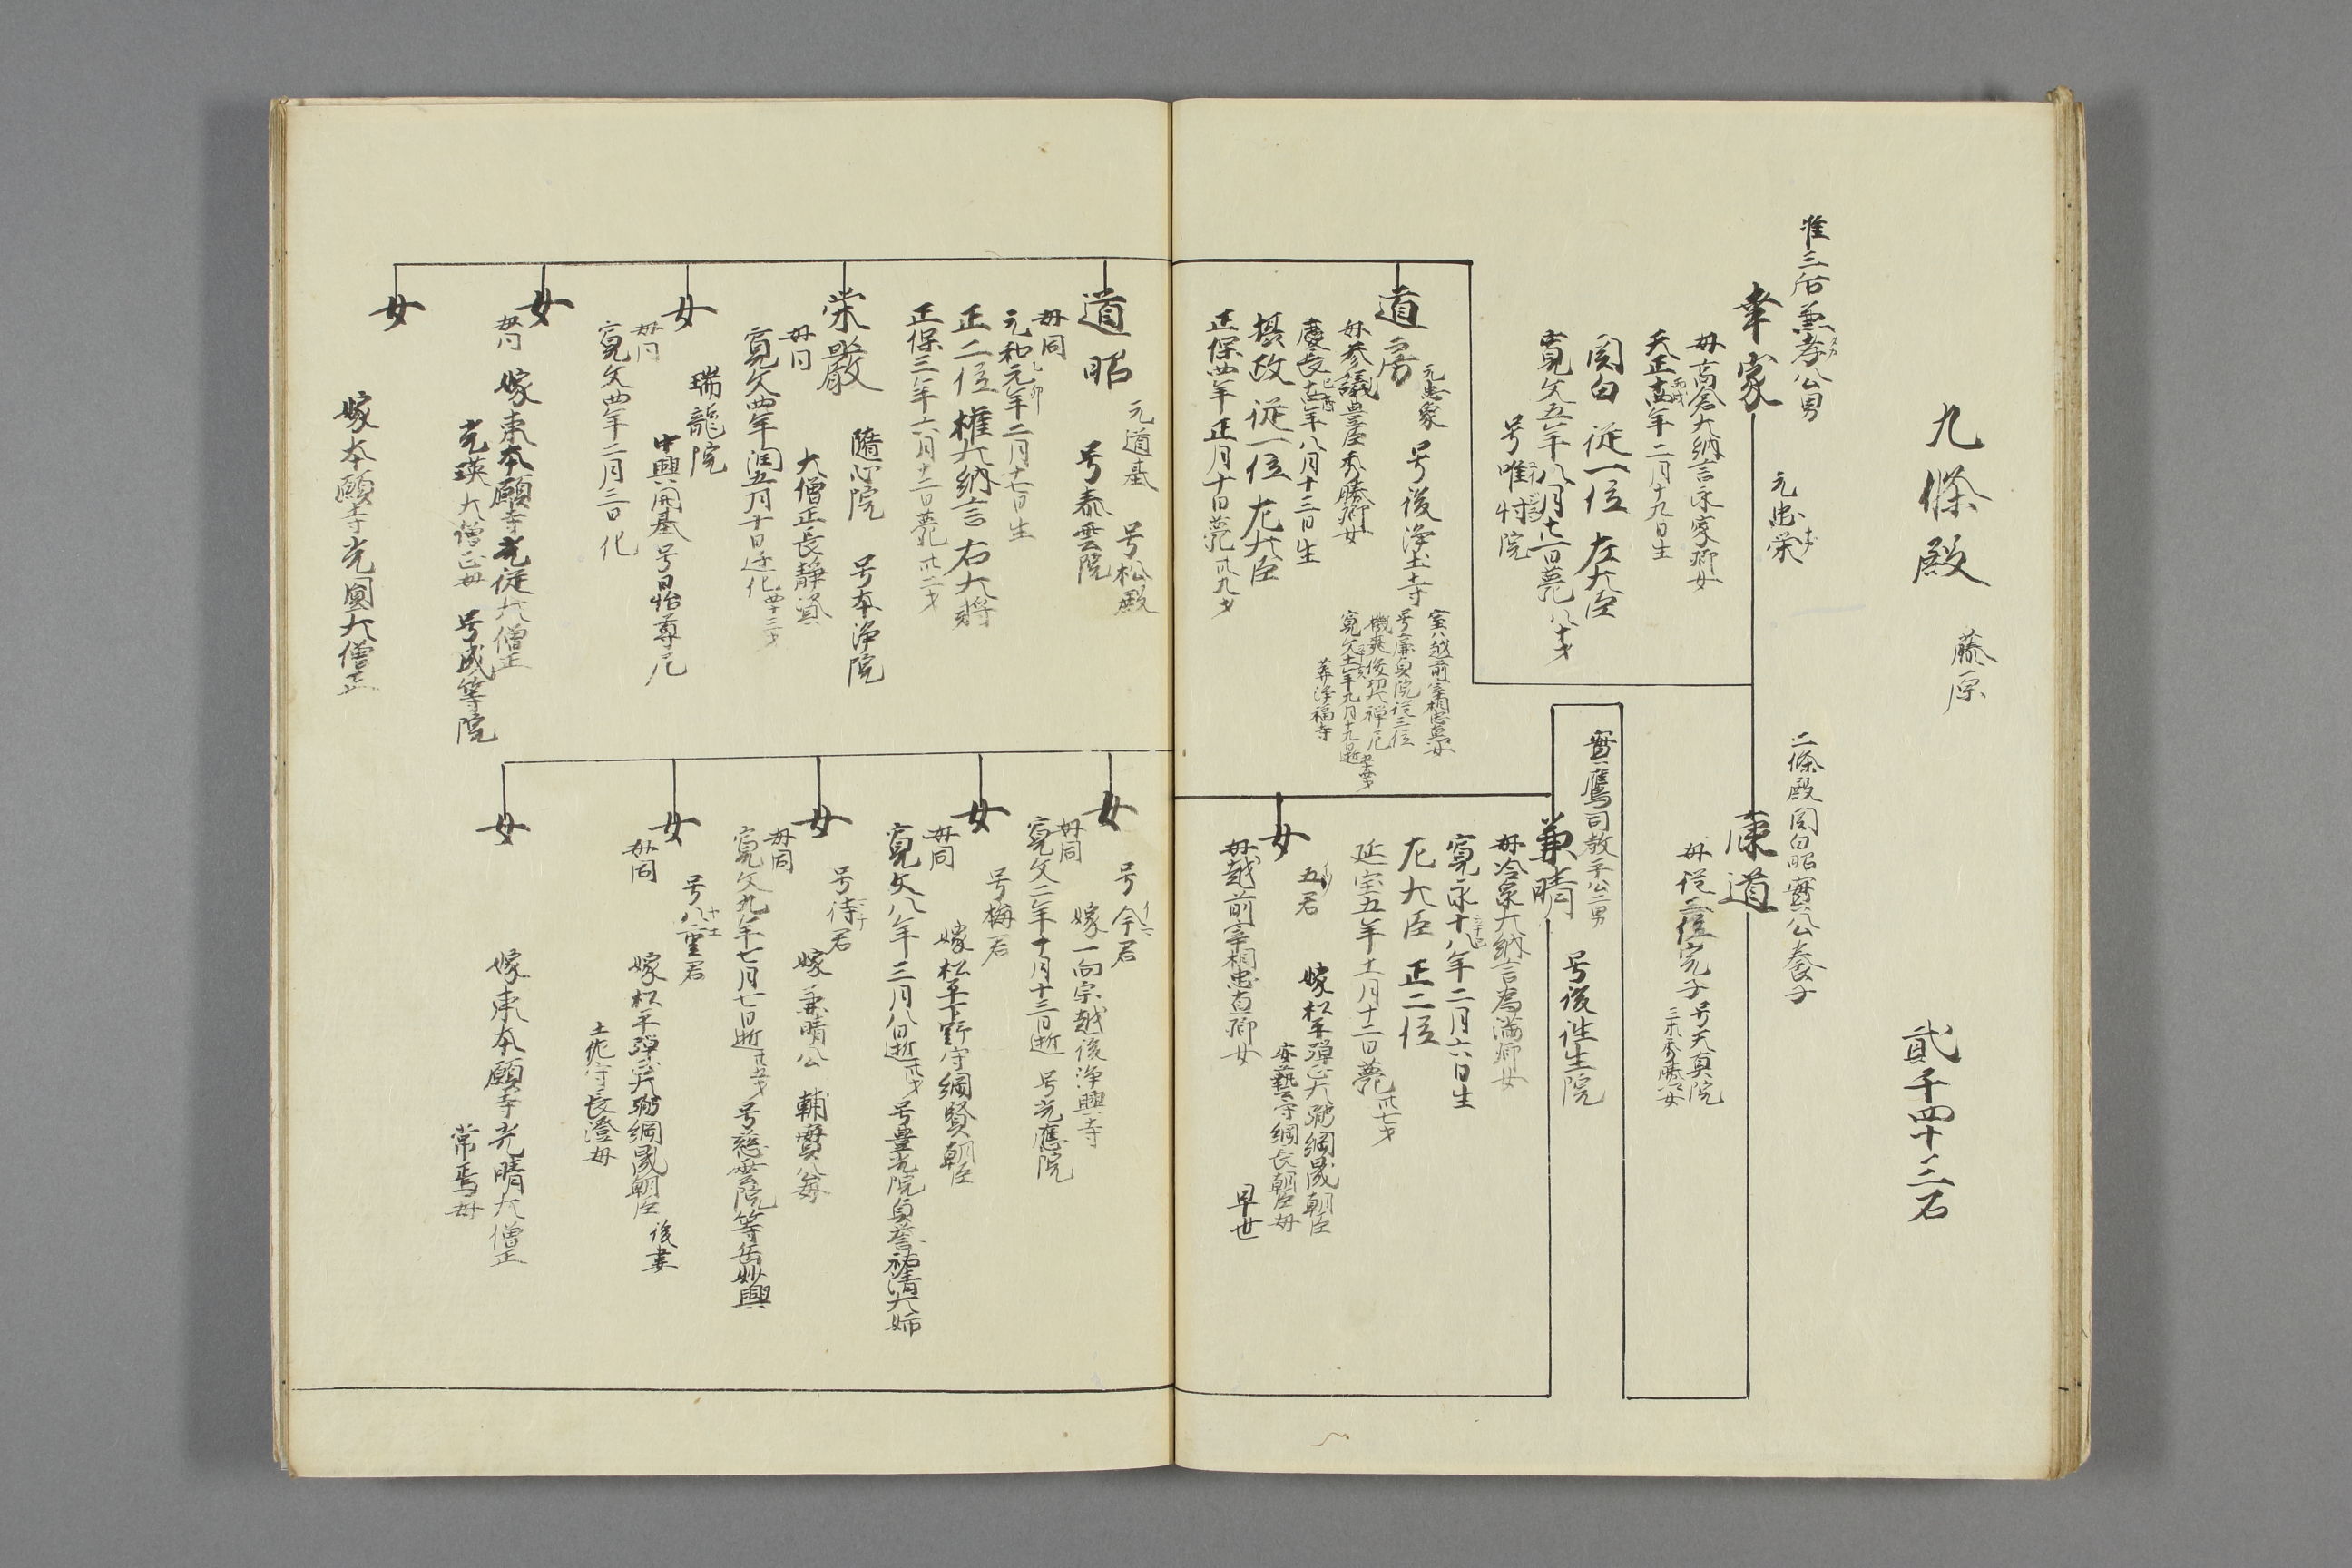 九條殿 藤原 貳千四十三石
准三后兼孝公男
幸家 元忠栄
母高倉大納言永家卿女
天正十四年二月十九日生
関白 従一位 左大臣
寛文五年八月廿一日薨 八十才
号唯忖院
道房 元忠象 号後浄土寺
母参議豊臣秀勝卿女
慶長十四年八月十三日生
摂政 従一位 左大臣
正保四年正月十日薨 卅九才
室ハ越前宰相忠直女
号廉貞院 従三位
寛文十一年九月十九日逝
葬浄福寺
二條殿関白昭實公養子
康道
母従三位完子 号天真院
實鷹司教平公二男
兼晴 号後往生院
母冷泉大納言為満卿女
寛永十八年二月六日生
左大臣 正二位
延宝五年十一月十二日薨 卅七才
女 五君 嫁松平弾正大弼綱晟朝臣
安藝守綱長朝臣母
母越前宰相忠直卿女 早世
道昭 元道基 号松殿
号泰雲院
母同
元和元年二月十七日生
正二位 権大納言 右大将
正保三年六月十二日薨 卅二才
栄嚴 随心院 号本浄院
母同 大僧正長静資
寛文四年潤五月十日迁化 四十三才
女 瑞龍院
中興開基号日怡尊尼
母同
寛文四年二月三日化
女 嫁東本願寺光従大僧正
母同
光瑛大僧正母 号成等院
女
嫁本願寺光圓大僧正
女 号今君
嫁一向宗越後浄興寺
母同
寛文二年十月十三日逝 号光應院
女 号梅君
嫁松平下野守綱賢朝臣
母同
寛文八年三月八日逝 号豊光院貞誉祐清大姉
女 号待君
嫁兼晴公 輔實公母
母同
寛文九年七月七日逝 号慈雲院等岳妙興
女 号八重君
母同 嫁松平弾正大弼綱晟朝臣 後妻
土佐守長澄母
女
嫁東本願寺光晴大僧正
常焉母